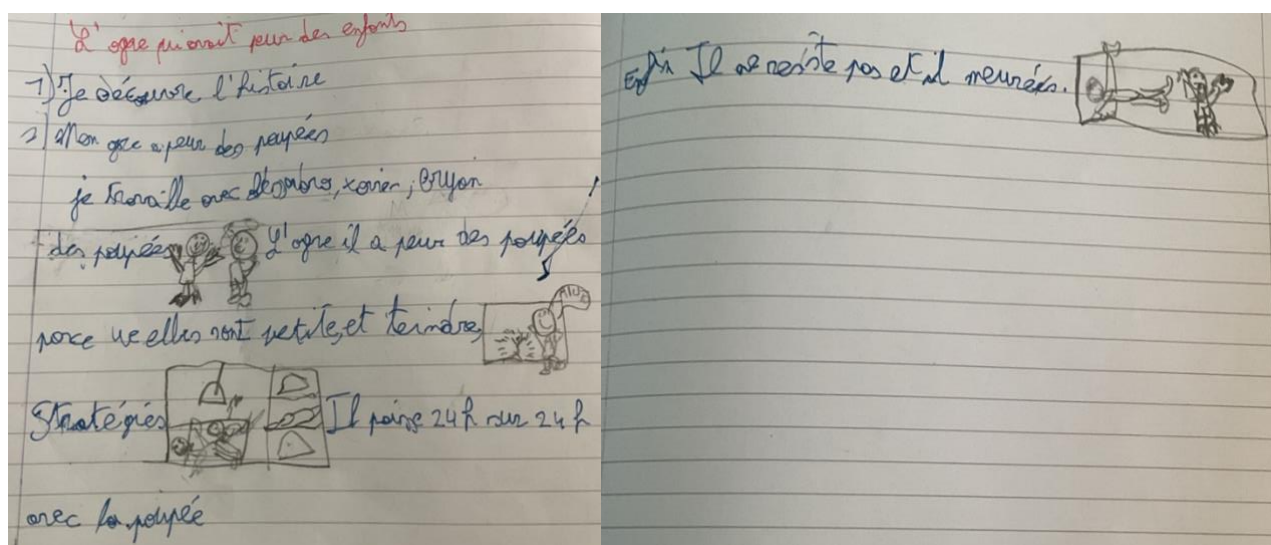 L'ogre qui avait peur des enfants
1) Je découvre l'histoire
2) Mon ogre a peur des poupées
je travaille avec xavier, Bryan
des poupées L'ogre il a peur des poupées
parce ue elles sont petite, et teindre,
AIDE
Stratégies Il passe 24h sur 24h
avec la poupée
Enfin Il ne resiste pas et il meurées.